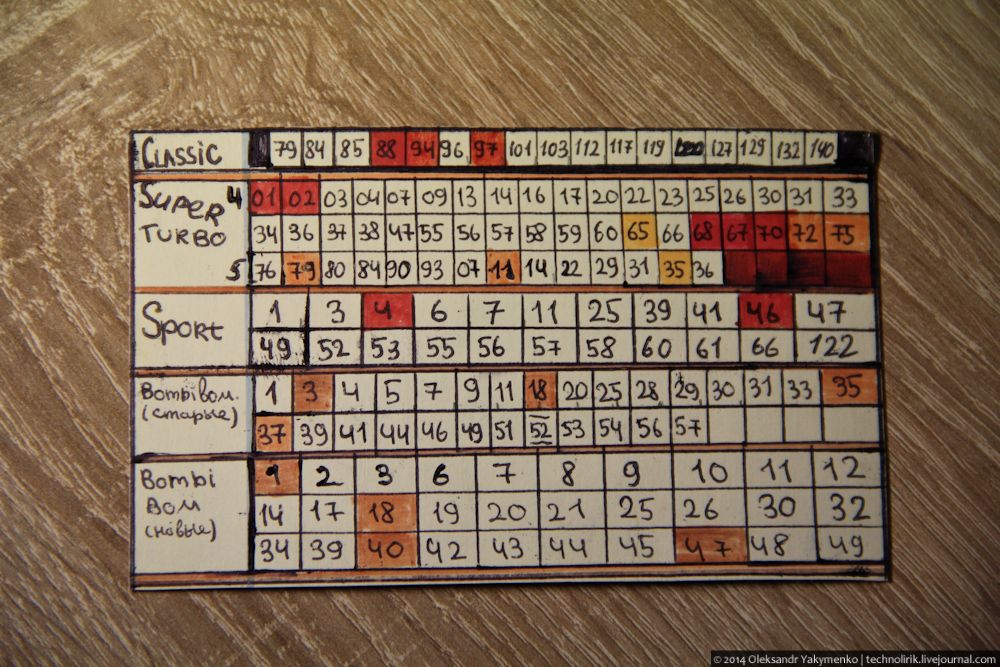 CLASSIC 79 84 85 88 94 96 97 101 103 112 117 119 127 129 132 140
SUPER 4 01 02 03 04 07 09 13 14 16 17 20 22 23 25 26 30 31 33
TURBO 34 36 37 38 47 55 56 57 58 59 60 65 66 68 67 70 72 75
5 76 79 80 84 90 93 07 11 14 22 29 31 35 36
SPORT 1 3 4 6 7 11 25 39 41 46 47
49 52 53 55 56 57 58 60 61 66 122
BOMBIBOM. 1 3 4 5 7 9 11 18 20 25 28 29 30 31 33 35
(старые) 37 39 41 44 46 49 51 52 53 54 56 57
BOMBI 1 2 3 6 7 8 9 10 11 12
BOM 14 17 18 19 20 21 25 26 30 32
(новые) 34 39 40 42 43 44 45 47 48 49
© 2014 Oleksandr Yakymenko | technolirik.livejournal.com